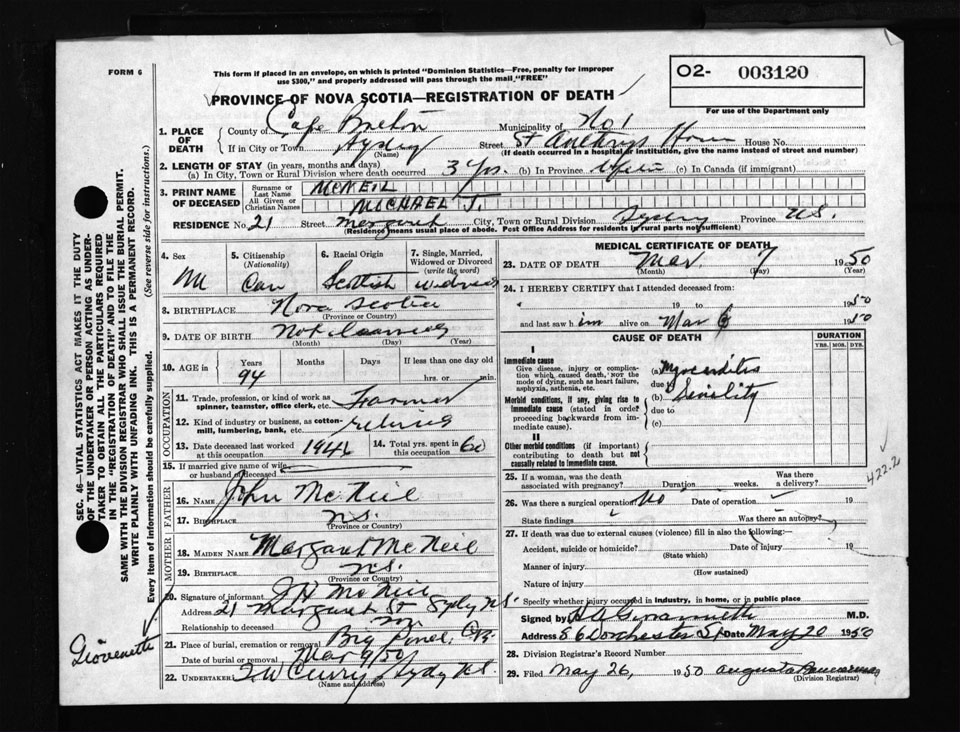 FORM 6
This form if placed in an envelope, on which is printed "Dominion Statistics—Free, penalty for improper
use $300," and properly addressed will pass through the mail "FREE"
O2- 003120
PROVINCE OF NOVA SCOTIA—REGISTRATION OF DEATH
For use of the Department only
1. PLACE OF DEATH
County of Cape Breton Municipality of No 1
If in City or Town Sydney Street St Anthonys Home House No.
(Name) (If death occurred in a hospital or institution, give the name instead of street and number)
2. LENGTH OF STAY (in years, months and days)
(a) In City, Town or Rural Division where death occurred 3 yrs. (b) In Province Life (c) In Canada (if immigrant)
3. PRINT NAME OF DECEASED
Surname or Last Name MCNEIL
All Given or Christian Names MICHAEL J.
RESIDENCE No. 21 Street Margaret City, Town or Rural Division Sydney Province N.S.
(Residence means usual place of abode. Post Office Address for residents in rural parts not sufficient)
4. Sex M
5. Citizenship (Nationality) Can
6. Racial Origin Scottish
7. Single, Married, Widowed or Divorced (write the word) widowed
8. BIRTHPLACE Nova Scotia
(Province or Country)
9. DATE OF BIRTH Not
(Month) (Day) (Year)
10. AGE in Years 94 Months Days If less than one day old
hrs. or min.
OCCUPATION
11. Trade, profession or kind of work as spinner, teamster, office clerk, etc. Farmer
12. Kind of industry or business, as cotton-mill, lumbering, bank, etc.
13. Date deceased last worked at this occupation 1944
14. Total yrs. spent in this occupation 60
15. If married give name of wife or husband of deceased
FATHER
16. NAME John McNeil
17. BIRTHPLACE N.S.
(Province or Country)
MOTHER
18. MAIDEN NAME Margaret McNeil
19. BIRTHPLACE N.S.
(Province or Country)
20. Signature of informant J H McNeil
Address 21 Margaret St Sydney N.S.
Relationship to deceased
21. Place of burial, cremation or removal Big Pond, C.B.
Date of burial or removal Mar 9/50
22. UNDERTAKER T W Curry, Sydney N.S.
(Name and address)
MEDICAL CERTIFICATE OF DEATH
23. DATE OF DEATH Mar. 7 1950
(Month) (Day) (Year)
24. I HEREBY CERTIFY that I attended deceased from:
19 to 1950
and last saw him alive on Mar 6 1950
CAUSE OF DEATH DURATION
YRS. MOS. DYS.
I
Immediate cause
Give disease, injury or complication which caused death, NOT the mode of dying, such as heart failure, asphyxia, asthenia, etc.
(a) Myocarditis
due to
Morbid conditions, if any, giving rise to immediate cause (stated in order proceeding backwards from immediate cause).
(b) Senility
due to
(c)
II
Other morbid conditions (if important) contributing to death but not causally related to immediate cause.
422.2
25. If a woman, was the death associated with pregnancy? Duration weeks. Was there a delivery?
26. Was there a surgical operation No Date of operation 19
State findings Was there an autopsy?
27. If death was due to external causes (violence) fill in also the following:—
Accident, suicide or homicide? Date of injury 19
(State which)
Manner of injury
(How sustained)
Nature of injury
Specify whether injury occurred in industry, in home, or in public place
Signed by M.D.
Address 86 Dorchester St Date May 20 1950
28. Division Registrar's Record Number
29. Filed May 26, 1950 Augusta
(Division Registrar)
SEC. 46—VITAL STATISTICS ACT MAKES IT THE DUTY
OF THE UNDERTAKER OR PERSON ACTING AS UNDER-
TAKER TO OBTAIN ALL THE PARTICULARS REQUIRED
IN THE "REGISTRATION OF DEATH" AND TO FILE THE
SAME WITH THE DIVISION REGISTRAR WHO SHALL ISSUE THE BURIAL PERMIT.
WRITE PLAINLY WITH UNFADING INK. THIS IS A PERMANENT RECORD.
Every item of information should be carefully supplied. (See reverse side for instructions.)
Giovenetti